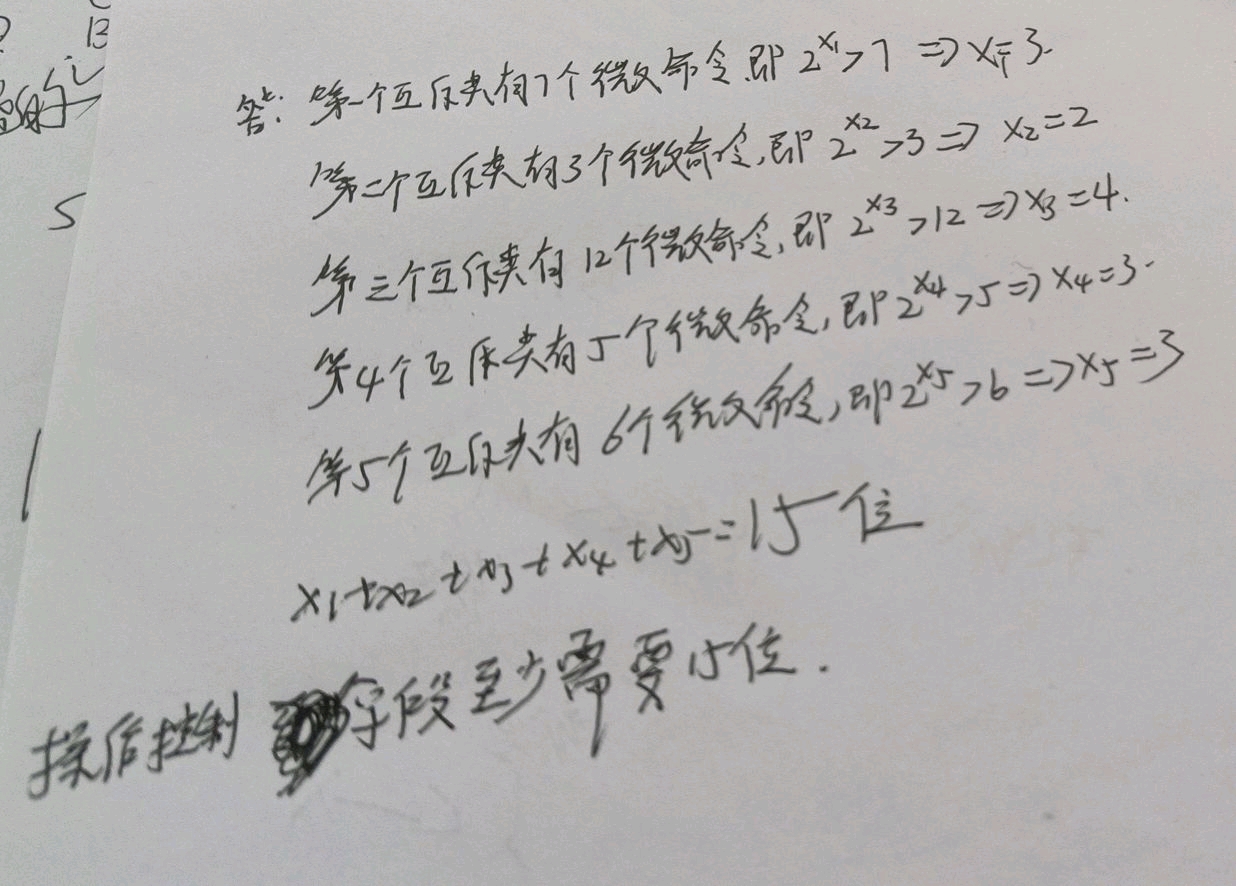 B
5
答: 第一个互斥类有7个微命令.即 2^x1>7 => x1=3.
第二个互斥类有3个微命令,即 2^x2>3 => x2=2
第三个互斥类有12个微命令,即 2^x3>12 => x3=4.
第4个互斥类有5个微命令,即2^x4>5 => x4=3.
第5个互斥类有6个微命令,即2^x5>6 => x5=3
x1+x2+x3+x4+x5=15位
操作控制字段至少需要15位.